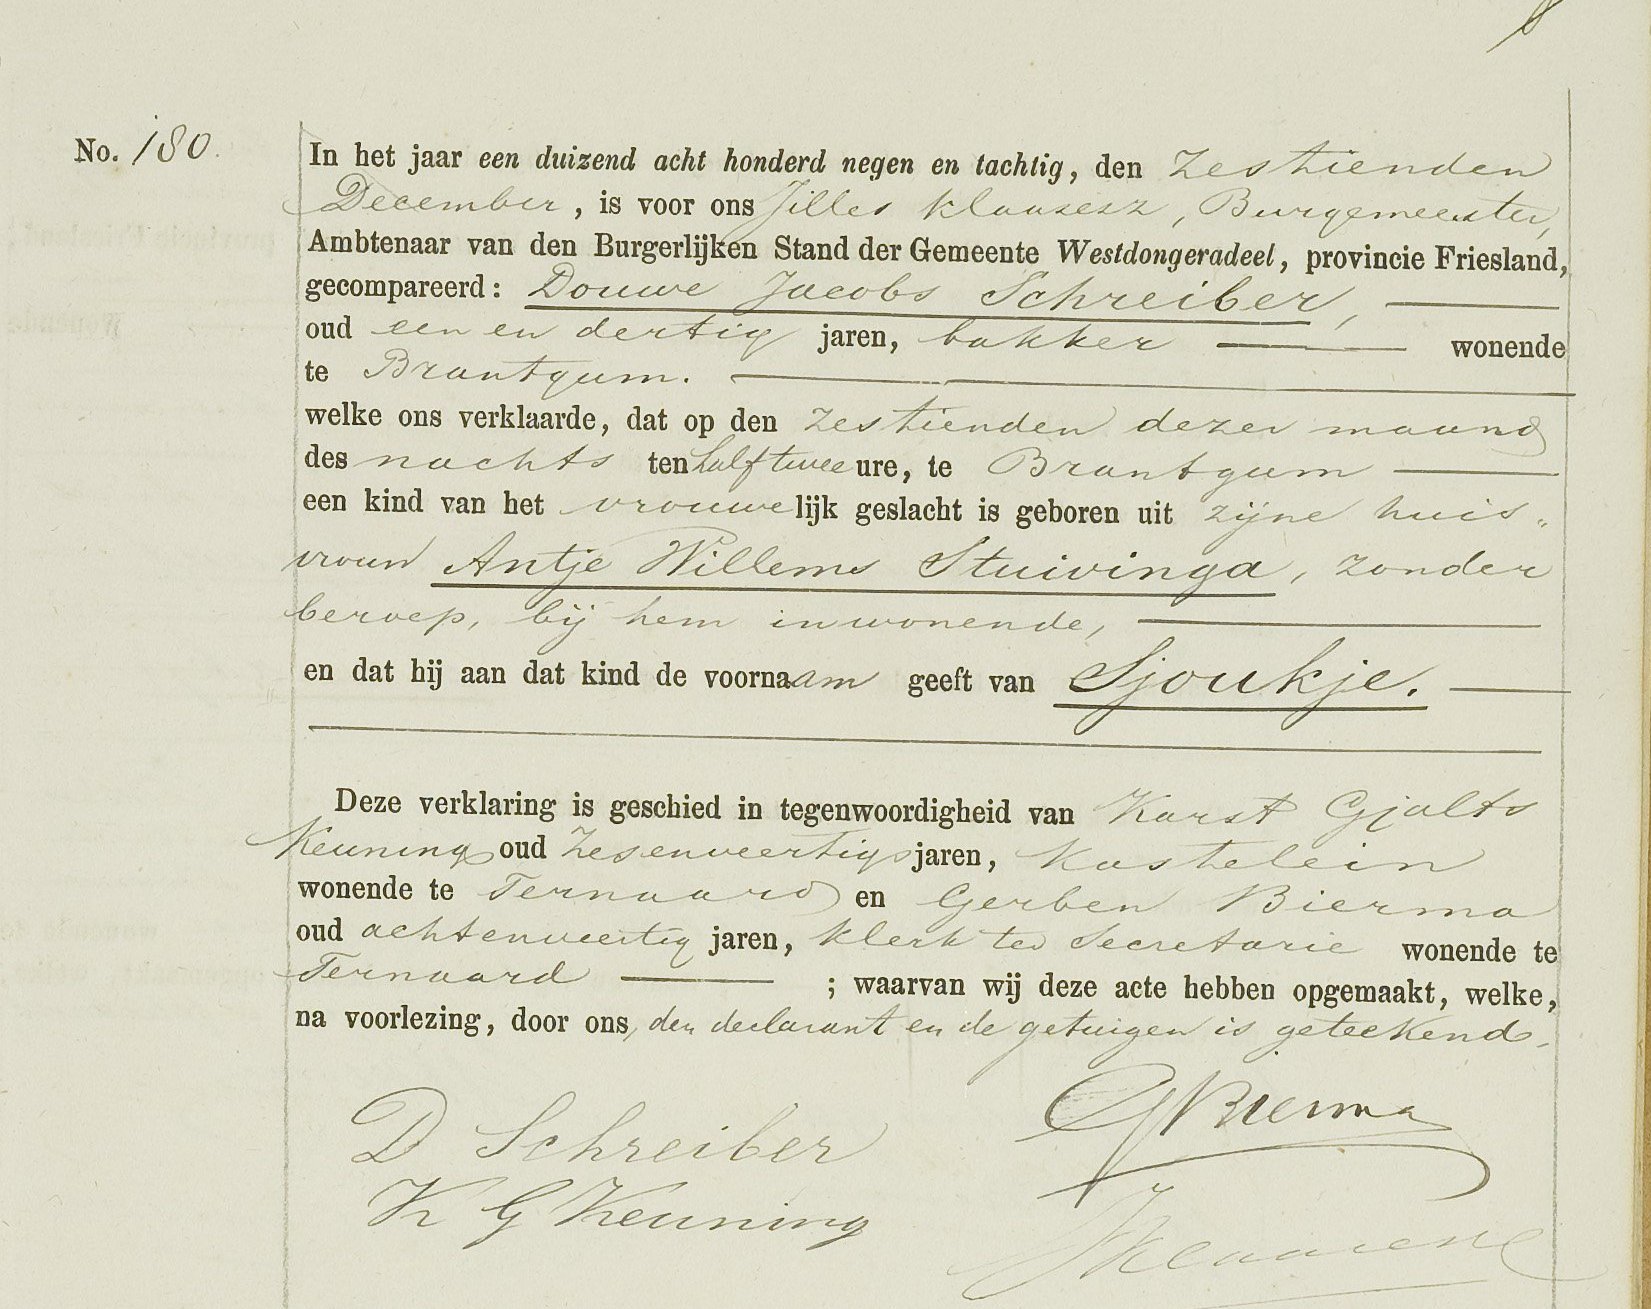 No. 180.
In het jaar een duizend acht honderd negen en tachtig, den zestienden
December, is voor ons Jilles Klaasesz, Burgemeester,
Ambtenaar van den Burgerlijken Stand der Gemeente Westdongeradeel, provincie Friesland,
gecompareerd: Douwe Jacobs Schreiber,
oud een en dertig jaren, bakker wonende
te Brantgum.
welke ons verklaarde, dat op den zestienden dezer maand
des nachts ten half twee ure, te Brantgum
een kind van het vrouwelijk geslacht is geboren uit zijne huis„
vrouw Antje Willems Stuivinga, zonder
beroep, bij hem inwonende,
en dat hij aan dat kind de voornaam geeft van Sjoukje.
Deze verklaring is geschied in tegenwoordigheid van Karst Gjalts
Keuning oud zesenveertig jaren, kastelein
wonende te Ternaard en Gerben Bierma
oud achtenveertig jaren, klerk ter Secretarie wonende te
Ternaard ; waarvan wij deze acte hebben opgemaakt, welke,
na voorlezing, door ons, den declarant en de getuigen is geteekend.
D Schreiber
GBierma
K G Keuning